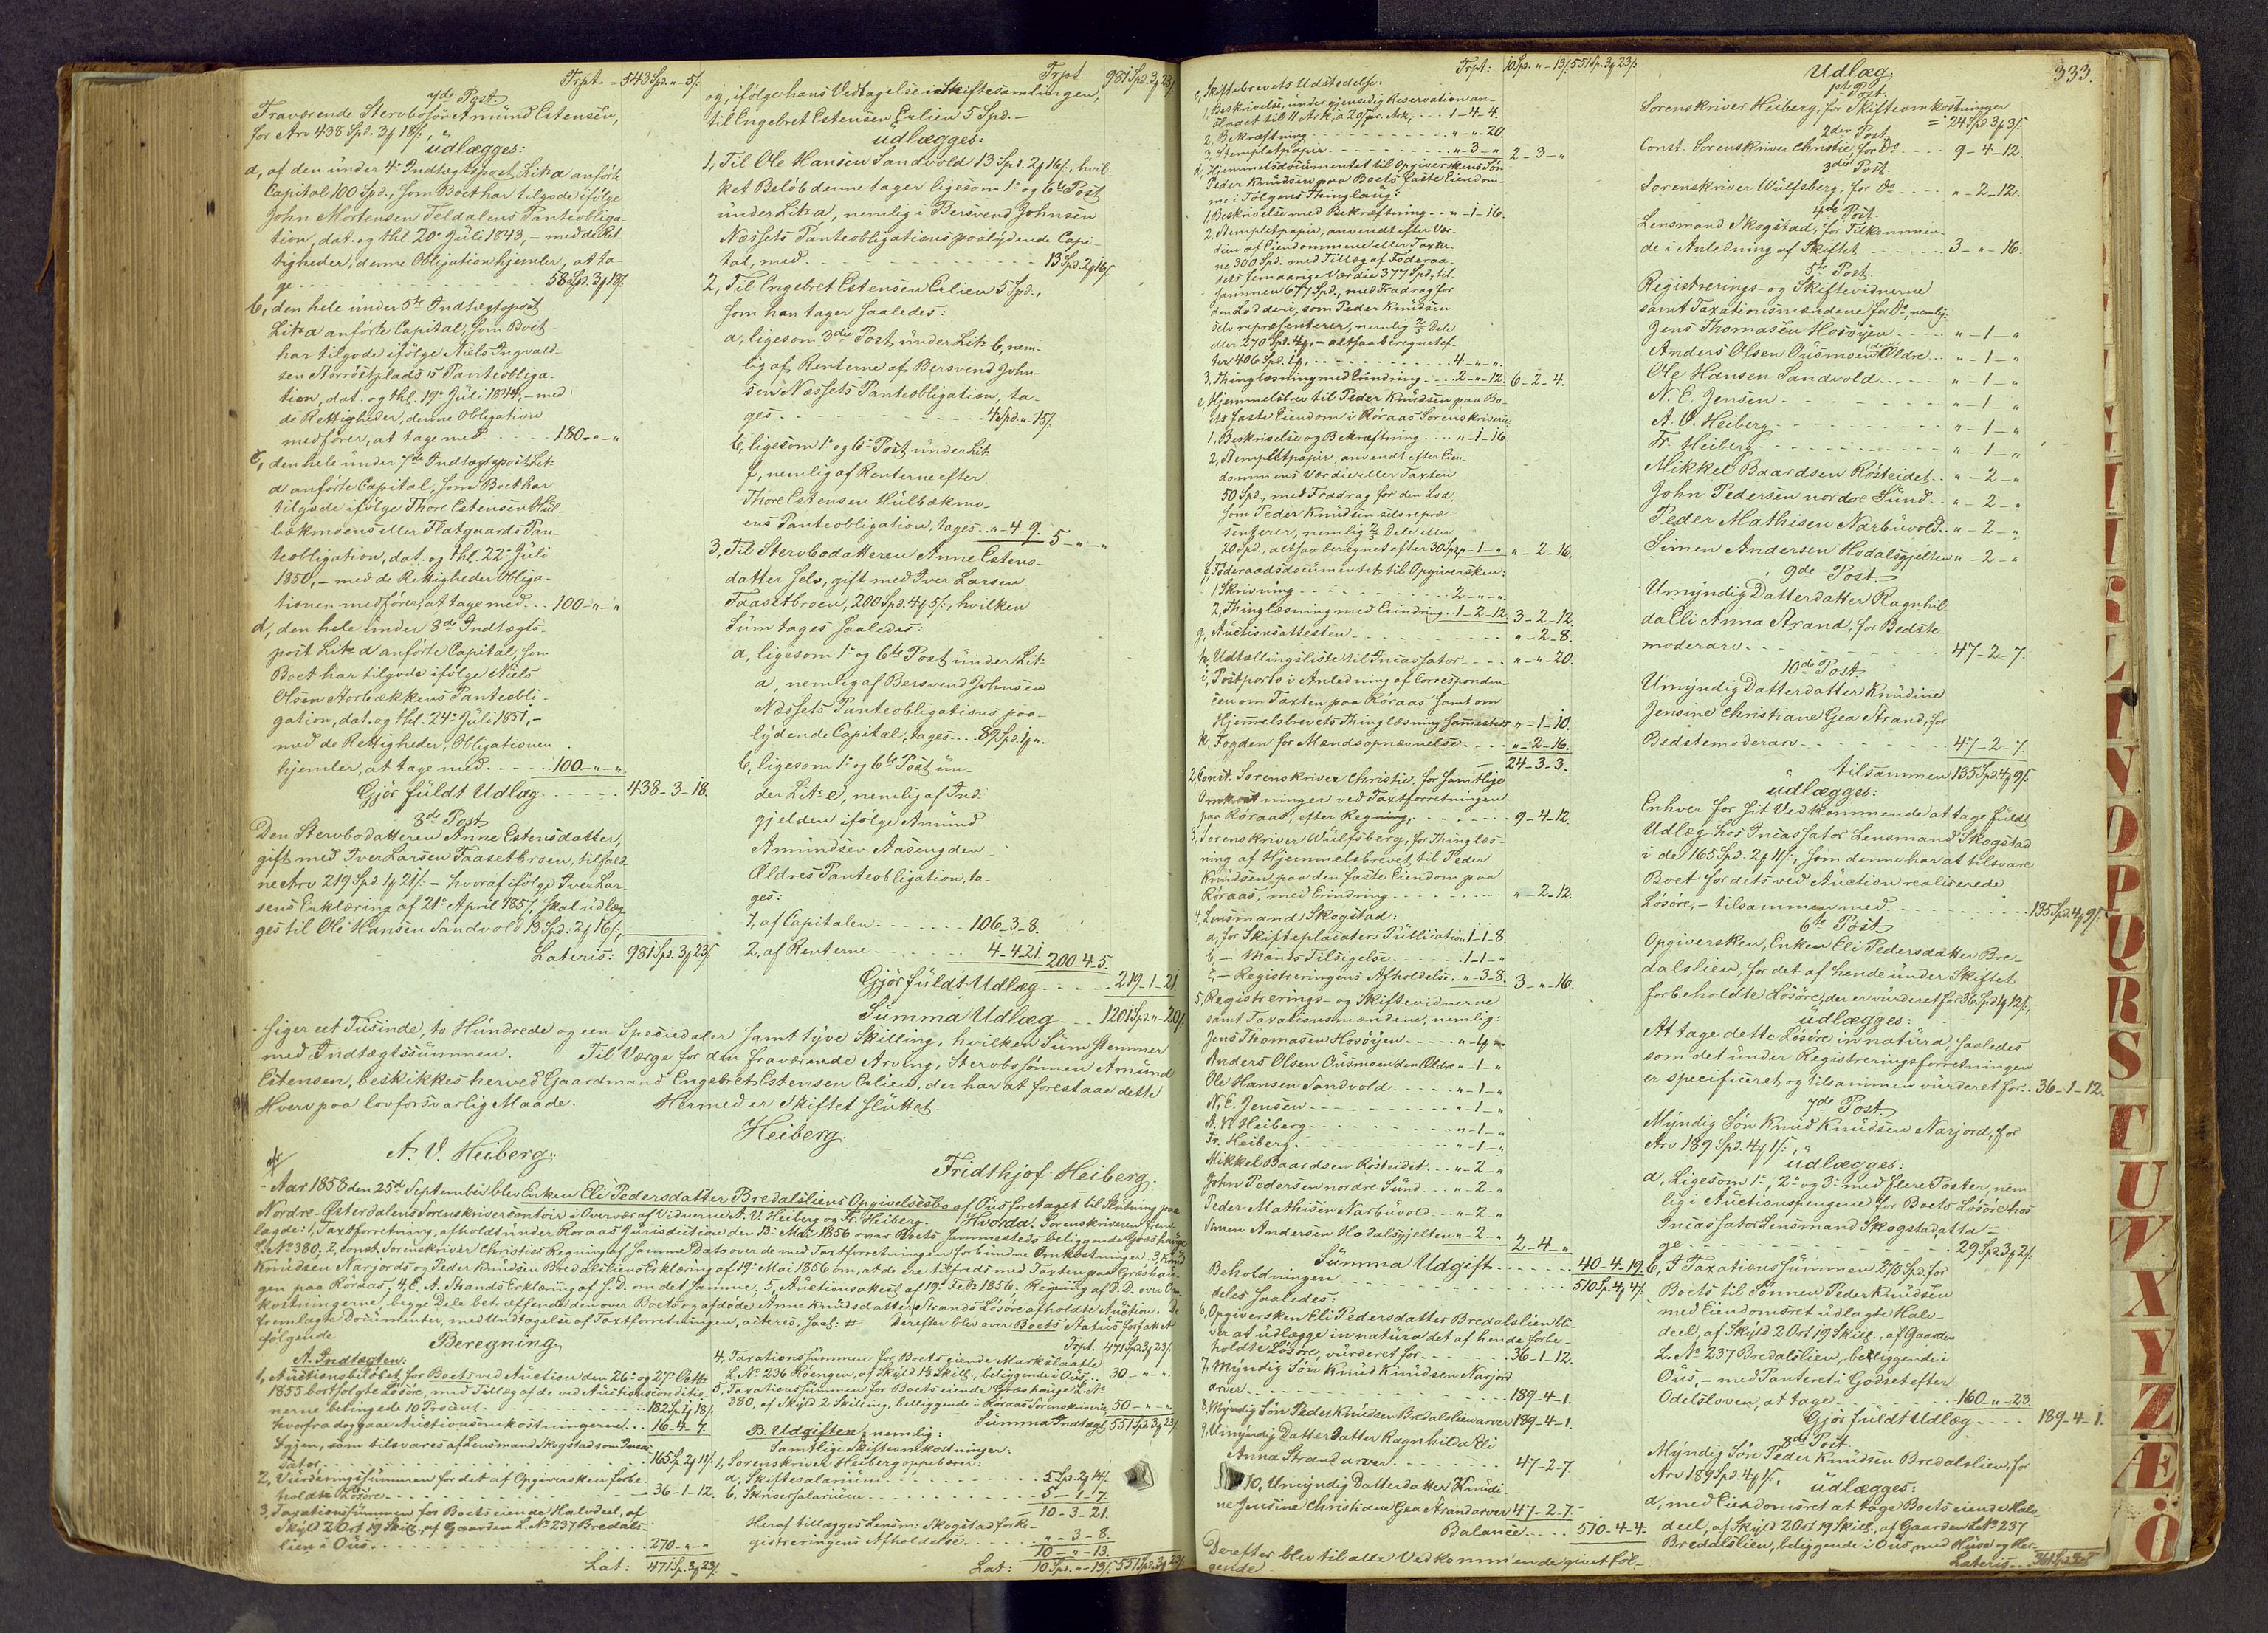 Trpt. - 543 Spd. " - 5 ß.
7de Post.
Fraværende Stervbosøn Amünd Estensen,
for Arv 438 Spd. 3 ƒ 18 ß.,
üdlægges:
a, af den ünder 4de Indtægtspost Litr. a anførte
Capital 100 Spd., som Boet har tilgode ifølge
John Mortensen Teldalens Panteobliga-
tion, dat. og thl. 20de Jüli 1843, - med de Ret-
tigheder, denne Obligation hjemler, at ta-
ge . . . 58 Spd. 3 ƒ 18 ß.
b, den hele ünder 5te Indtægtspost
Litr. a anførte Capital, som Boet
har tilgode ifølge Niels Ingvald-
sen Panteobliga-
tion, dat. og thl. 19de Jüli 1844, - med
de Rettigheder, denne Obligation
medfører, at tage med . . . 180 - " - "
c, den hele ünder 7de Indtægtspost Litr.
a anførte Capital, som Boet har
tilgode ifølge Thore Estensen Hül-
bækmoens eller Flatgaards Pan-
teobligation, dat. og thl. 22de Jüli
1850, - med de Rettigheder Obliga-
tionen medfører, at tage med . . . 100 - " - "
d, den hele ünder 8de Indtægts-
post Litr. a anførte Capital, som
Boet har tilgode ifølge Niels
Olsen Panteobli-
gation, dat. og thl. 24de Jüli 1851, -
med de Rettigheder, Obligationen
hjemler, at tage med . . . 100 - " - "
Gjør füldt Udlæg . . . 438 - 3 - 18.
8de Post
Den Stervbodatteren Anne Estensdatter,
gift med Iver Larsen Faasetbroen, tilfald-
ne Arv 219 Spd. 1 ƒ 21 ß. - hvoraf ifølge Iver Lar-
sens Erklæring af 21de April 1857, skal üdlæg-
ges til Ole Hansen Sandvold 13 Spd. 2 ƒ 16 ß.,
Lateris: 981 Spd. 3 ƒ 23 ß.
Trpt. 981 Spd. 3 ƒ 23 ß.
og, ifølge hans Vedtagelse i Skiftesamlingen,
til Engebret Estensen Erlien 5 Spd. -
üdlægges:
1, Til Ole Hansen Sandvold 13 Spd. 2 ƒ 16 ß., hvil-
ket Beløb denne tager ligesom 1ste og 6te Post
ünder Litr. a, nemlig i Bersvend Johnsen
Næssets Panteobligations paalydende Capi-
tal, med . . . 13 Spd. 2 ƒ 16 ß.
2, Til Engebret Estensen Erlien 5 Spd.,
som han tager saaledes:
a, ligesom 3die Post ünder Litr. b, nem-
lig af Renterne af Bersvend John-
sen Næssets Panteobligation, ta-
ges . . . 4 Spd. " - 15 ß.
b, ligesom 1ste og 6te Post ünder Litr.
f, nemlig af Renterne efter
Thore Estensen Hülbækmo-
ens Panteobligation, tages . . " - 4 - 9. 5 - " - "
3, Til Stervbodatteren Anne Estens-
datter selv, gift med Iver Larsen
Faasetbroen, 200 Spd. 4 ƒ 5 ß., hvilken
Süm tages saaledes:
a, ligesom 1ste og 6te Post ünder Litr.
a, nemlig af Bersvend Johnsen
Næssets Panteobligations paa-
lydende Capital, tages . . . 89 Spd. 1 ƒ ".
b, ligesom 1ste og 6te Post ün-
der Litr. e, nemlig af Ind-
gjelden ifølge Amünd
Amündsen Aasengden
Ældres Panteobligation, ta-
ges:
1, af Capitalen . . . 106 - 3 - 8.
2, af Renterne . . . 4 - 4 - 21. 200 - 4 - 5.
Gjør füldt Udlæg . . . 219 - 1 - 21.
Sümma Udlæg . . . 1201 Spd. " - 20 ß.
siger eet Tüsinde, to Hündrede og een Speciedaler samt tyve Skilling, hvilken Süm stemmer
med Indtægtssümmen. Til Værge for den fraværende Arving, Stervbosønnen Amünd
Estensen, beskikkes herved Gaardmand Engebret Estensen Erlien, der har at forestaae dette
Hverv paa lovforsvarlig Maade. Hermed er Skiftet slüttet.
Heiberg.
A. V. Heiberg.
Fridthjof Heiberg.
Aar 1858 den 25de September blev Enken Eli Pedersdatter Bredalsliens Opgivelsesbo af Øüs foretaget til Slütning paa
Nordre-Østerdalens Sorenskrivercontoir i Overvær af Vidnerne A. V. Heiberg og Fr. Heiberg. Hvorda Sorenskriveren frem-
lagde: 1, Taxtforretning, afholdt ünder Røraas Jürisdiction den 13de Mai 1856 over Boets sammesteds beliggende Græshauge
L. No 380; 2, const. Sorenskriver Christies Regning af samme Dato over de med Taxtforretningen forbündne Omkostninger; 3, Knüd
Knüdsen Narjords og Peder Knüdsen Bredalsliens Erklæring af 19de Mai 1856 om, at de ere tilfreds med Taxten paa Græshau-
gen paa Røraas; 4, E. A. Strands Erklæring af S. D. om det samme; 5, Auctionsakt af 19de Feb. 1856. Regning af D. D. over Om-
kostningerne, begge Dele betræffende den over Boets og afdøde Anne Knüdsdatter Strands Løsøre afholdte Aüction. De
fremlagte Documenter, med Undtagelse af Taxtforretningen, acteres, saal: # Derefter blev over Boets Status forfattet
følgende
Beregning
A. Indtægten:
1, Aüctionsbeløbet for Boets ved Aüction den 26de og 27de Octbr.
1855 bortsolgte Løsøre, med Tillæg af de ved Aüctionsconditio-
nerne betingede 10 Procent . . . 182 Sp. 1 ƒ 18 ß.
hvorfra dog gaae Aüctionsomkostningerne . . . 16 - 4 - 7.
Igjen, som tilsvares af Lensmand Skogstad som Incas-
sator . . . 165 Sp. 2 ƒ 11 ß.
2, Vürderingssümmen for det af Opgiversken forbe-
holdte Løsøre . . . 36 - 1 - 12.
3, Taxationssümmen for Boets eiende Halvdeel, af
Skyld 2 Ort 19 Skill., af Gaarden L. No 237 Bredals-
lien i Øüs . . . 270 - " - "
Lat: 471 Sp. 3 ƒ 23 ß.
Trpt. 471 Spd. 3 ƒ 23 ß.
4, Taxationssümmen for Boets eiende Markslaatte
L. No 236 Røengen, af Skyld 13 Skill., beliggende i Øüs . . 30 - " - ".
5, Taxationssümmen for Boets eiende Græshauge L. No
380, af Skyld 2 Skilling, beliggende i Røraas Sorenskriveri 50 - " - "
Sümma Indtægt 551 Spd. 3 ƒ 23 ß.
B. Udgiften, nemlig:
Samtlige Skifteomkostninger:
1, Sorenskriver Heiberg oppebærer:
a, Skiftesalarium . . . 5 Spd. 2 ƒ 14 ß.
b, Skriversalarium . . . 5 - 1 - 7.
10 - 3 - 21.
Heraf tillægges Lensm: Skogstad for Re-
gistreringens Afholdelse . . . " - 3 - 8.
10 - " - 13.
Lat: 10 Spd. " - 13 ß. 551 Spd. 3 ƒ 23 ß.
Trpt: 10 Sp. " - 13 ß. 551 Sp. 3 ƒ 23 ß.
c, Skiftebrevets Udstedelse:
1, Beskrivelse, ünder gjensidig Reservation an-
slaaet til 11 Ark, à 20 ß. pr. Ark, . . . 1 - 4 - 4.
2, Bekræftning . . . " - " - 20.
3, Stemplet papir . . . " - 3 - " 2 - 3 - "
d, Hjemmelsdocümentet til Opgiverskens Søn
Peder Knüdsen paa Boets faste Eiendom-
me i Tolgens Thinglaüg:
1, Beskrivelse med Bekræftning . . " - 1 - 16.
2, Stemplet papir, anvendt efter Vær-
dien af Eiendommene eller Taxter-
ne 300 Spd. med Tillæg af Føderaa-
dets femaarige Værdie 377 Spd., til-
sammen 677 Spd., med Fradrag for
den Lod deri, som Peder Knüdsen
selv repræsenterer, nemlig 2/5 Dele
eller 270 Spd. 4 ƒ, - altsaa beregnet ef-
ter 406 Spd. 1 ƒ, . . . 4 - " - ".
3, Thinglæsning med Erindring . . . 2 - " - 12. 6 - 2 - 4.
e, Hjemmelsbrev til Peder Knüdsen paa Bo-
ets faste Eiendom i Røraas Sorenskriveri:
1, Beskrivelse og Bekræftning . . . " - 1 - 16.
2, Stemplet papir, anvendt efter Eien-
dommens Værdie eller Taxten
50 Spd., med Fradrag for den Lod,
som Peder Knüdsen selv repræ-
senterer, nemlig 2/5 Dele eller
20 Spd., altsaa beregnet efter 30 Spd. " - 1 - " " - 2 - 16.
f, Føderaadsdocümentet til Opgiversken:
1, Skrivning . . . 2 - " - ".
2, Thinglæsning med Erindring . . 1 - 2 - 12. 3 - 2 - 12.
g, Aüctionsattesten . . . " - 2 - 8.
h, Udtællingsliste til Incassator . . . " - " - 20.
i, Postporto i Anledning af Corresponden-
cen om Taxten paa Røraas samt om
Hjemmelsbrevets Thinglæsning sammesteds " - 1 - 10.
k, Fogden for Mændsopnævnelse . . . " - 2 - 16.
24 - 3 - 3.
2, Const. Sorenskriver Christie, for samtlige
Omkostninger ved Taxtforretningen
paa Røraas, efter Regning, . . . 9 - 4 - 12.
3, Sorenskriver Wülfsberg, for Thinglæs-
ning af Hjemmelsbrevet til Peder
Knüdsen paa den faste Eiendom paa
Røraas, med Erindring . . . " - 2 - 12.
4, Lensmand Skogstad:
a, for Skifteplacaters Püblication 1 - 1 - 8.
b, - Mænds Tilsigelse . . . 1 - 1 - "
c, - Registreringens Afholdelse . . " - 3 - 8. 3 - " - 16.
5, Registrerings- og Skiftevidnerne
samt Taxationsmændene, nemlig:
Jens Thomasen Hosøyen . . . " - 1 ƒ "
Anders Olsen Øüsmoen den Ældre " - 1 - "
Ole Hansen Sandvold . . . " - 1 - "
N. E. Jensen . . . " - 1 - "
A. V. Heiberg . . . " - 1 - "
Fr. Heiberg . . . " - 1 - "
Mikkel Baardsen Røsteidet . . . " - 2 - "
John Pedersen nordre Sünd . . . " - 2 - "
Peder Mathisen Narbüvold . . . " - 2 - "
Simen Andersen Hodalsgjelten " - 2 - " 2 - 4 - "
Sümma Udgift . . . 40 - 4 - 19.
Beholdningen . . . 510 Sp. 4 ƒ 4 ß.
deles saaledes:
6, Opgiversken Eli Pedersdatter Bredalslien bli-
ver at üdlægge in natüra det af hende forbe-
holdte Løsøre, vürderet for . . . 36 - 1 - 12.
7, Myndig Søn Knüd Knüdsen Narjord
arver . . . 189 - 4 - 1.
8, Myndig Søn Peder Knüdsen Bredalslien arver 189 - 4 - 1.
9, Umyndig Datterdatter Ragnhilda Eli
Anna Strand arver . . . 47 - 2 - 7
10, Umyndig Datterdatter Knüdi-
ne Jensine Christiane Gea Strand arver 47 - 2 - 7. -
Balance . . . 510 - 4 - 4.
Derefter blev til alle Vedkommende givet føl-
gende
333.
Udlæg:
1ste Post.
Sorenskriver Heiberg, for Skifteomkostninger
24 Spd. 3 ƒ 3 ß.
2den Post
Const. Sorenskriver Christie, for Do . . . 9 - 4 - 12.
3die Post.
Sorenskriver Wülfsberg, for Do . . . " - 2 - 12.
4de Post.
Lensmand Skogstad, for Tilkommen-
de i Anledning af Skiftet . . . 3 - " - 16.
5te Post.
Registrerings- og Skiftevidnerne
samt Taxationsmændene for Do, nemlig:
Jens Thomasen Hosøyen . . . " - 1 - "
Anders Olsen Øüsmoen den Ældre . . " - 1 - "
Ole Hansen Sandvold . . . " - 1 - "
N. E. Jensen . . . " - 1 - "
A. V. Heiberg . . . " - 1 - "
Fr. Heiberg . . . " - 1 - "
Mikkel Baardsen Røsteidet . . " - 2 - "
John Pedersen nordre Sünd . . " - 2 - "
Peder Mathisen Narbüvold . . " - 2 - "
Simen Andersen Hodalsgjelten " - 2 - "
9de Post.
Umyndig Datterdatter Ragnhil-
da Eli Anna Strand, for Bedste-
moderarv . . . 47 - 2 - 7.
10de Post.
Umyndig Datterdatter Knüdine
Jensine Christiane Gea Strand, for
Bedstemoderarv . . . 47 - 2 - 7.
tilsammen 135 Spd. 4 ƒ 9 ß.
üdlægges:
Enhver for sit Vedkommende at tage füldt
Udlæg hos Incassator Lensmand Skogstad
i de 165 Spd. 2 ƒ 11 ß., som denne har at tilsvare
Boet for dets ved Aüction realiserede
Løsøre, - tilsammen med . . . 135 Spd. 4 ƒ 9 ß.
6te Post.
Opgiversken, Enken Eli Pedersdatter Bre-
dalslien, for det af hende ünder Skiftet
forbeholdte Løsøre, der er vürderet for 36 Spd. 1 ƒ 12 ß.,
üdlægges:
At tage dette Løsøre in natüra, saaledes
som det ünder Registreringsforretningen
er specificeret og tilsammen vürderet for . . 36 - 1 - 12.
7de Post.
Myndig Søn Knüd Knüdsen Narjord, for
Arv 189 Spd. 4 ƒ 1 ß.,
üdlægges:
a, Ligesom 1ste, 2de og 3die med flere Poster, nem-
lig i Aüctionspengene for Boets Løsøre hos
Incassator Lensmand Skogstad, at ta-
ge . . . 29 Spd. 3 ƒ 2 ß.
b, I Taxationssümmen 270 Spd. for
Boets til Sønnen Peder Knüdsen
med Eiendomsret üdlagte Halv-
deel, af Skyld 2 Ort 19 Skill., af Gaarden
L. No 237 Bredalslien, beliggende i
Øüs, - med Panteret i Godset efter
Odelsloven, at tage . . . 160 - " - 23.
Gjør füldt Udlæg . . . 189 - 4 - 1.
8de Post.
Myndig Søn Peder Knüdsen Bredalslien, for
Arv 189 Spd. 4 ƒ 1 ß.,
üdlægges:
a, med Eiendomsret at tage Boets eiende Halv-
deel, af Skyld 2 Ort 19 Skill., af Gaarden L. No 237
Bredalslien, beliggende i Øüs, med Hüse og Her-
Lateris . . 361 Spd.
K
L
N
O
P
Q
R
S
T
U
V
X
Y
Z
Æ
Ø